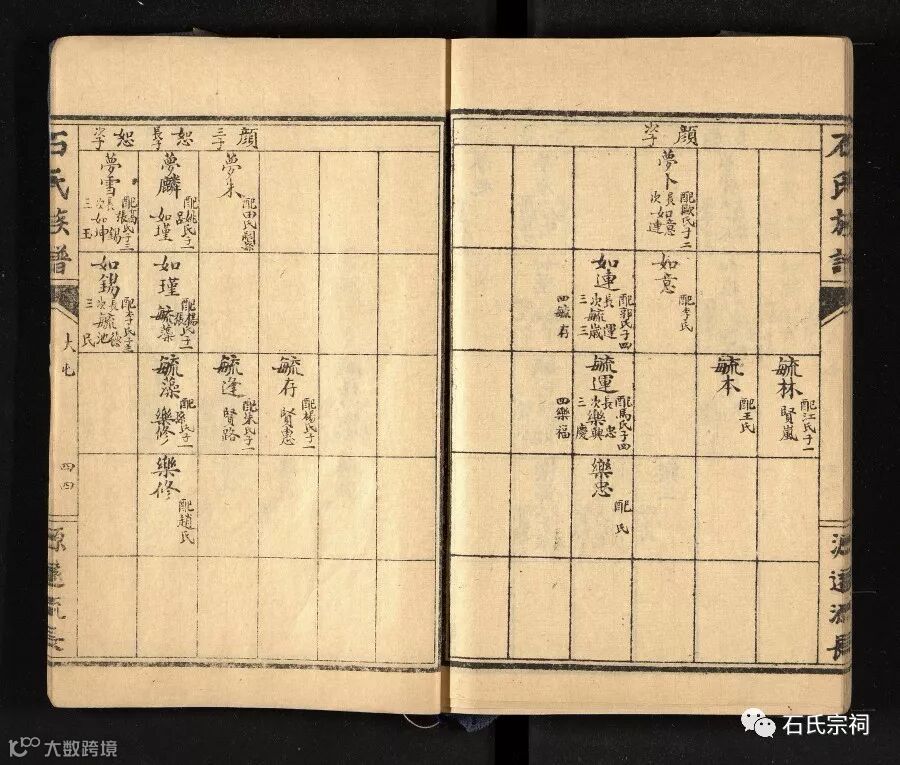 石氏族譜
源遠流長
顏次子
夢卜
配歐氏子二
長如意
次如連
如意
配李氏
如連
配郭氏子四
長運
次毓嵐
三三
四毓有
毓林
配江氏子一
賢嵐
毓本
配王氏
毓運
配馬氏子四
長忠
次樂興
三慶
四樂福
樂忠
配 氏
顏三子
夢朱
配田氏
恕長子
夢麟
配姚氏子一
呂
如瑾
恕次子
夢雪
長錫
次如坤
三玉
如瑾
配楊氏子一
張
毓藻
如錫
配李氏子三
次毓池
三氏
毓存
配楊氏子一
賢惠
毓逢
配朱氏子一
賢路
毓藻
樂修
樂修
配趙氏
石氏族譜
大屯
四四
源遠流長
石氏宗祠
大数跨境